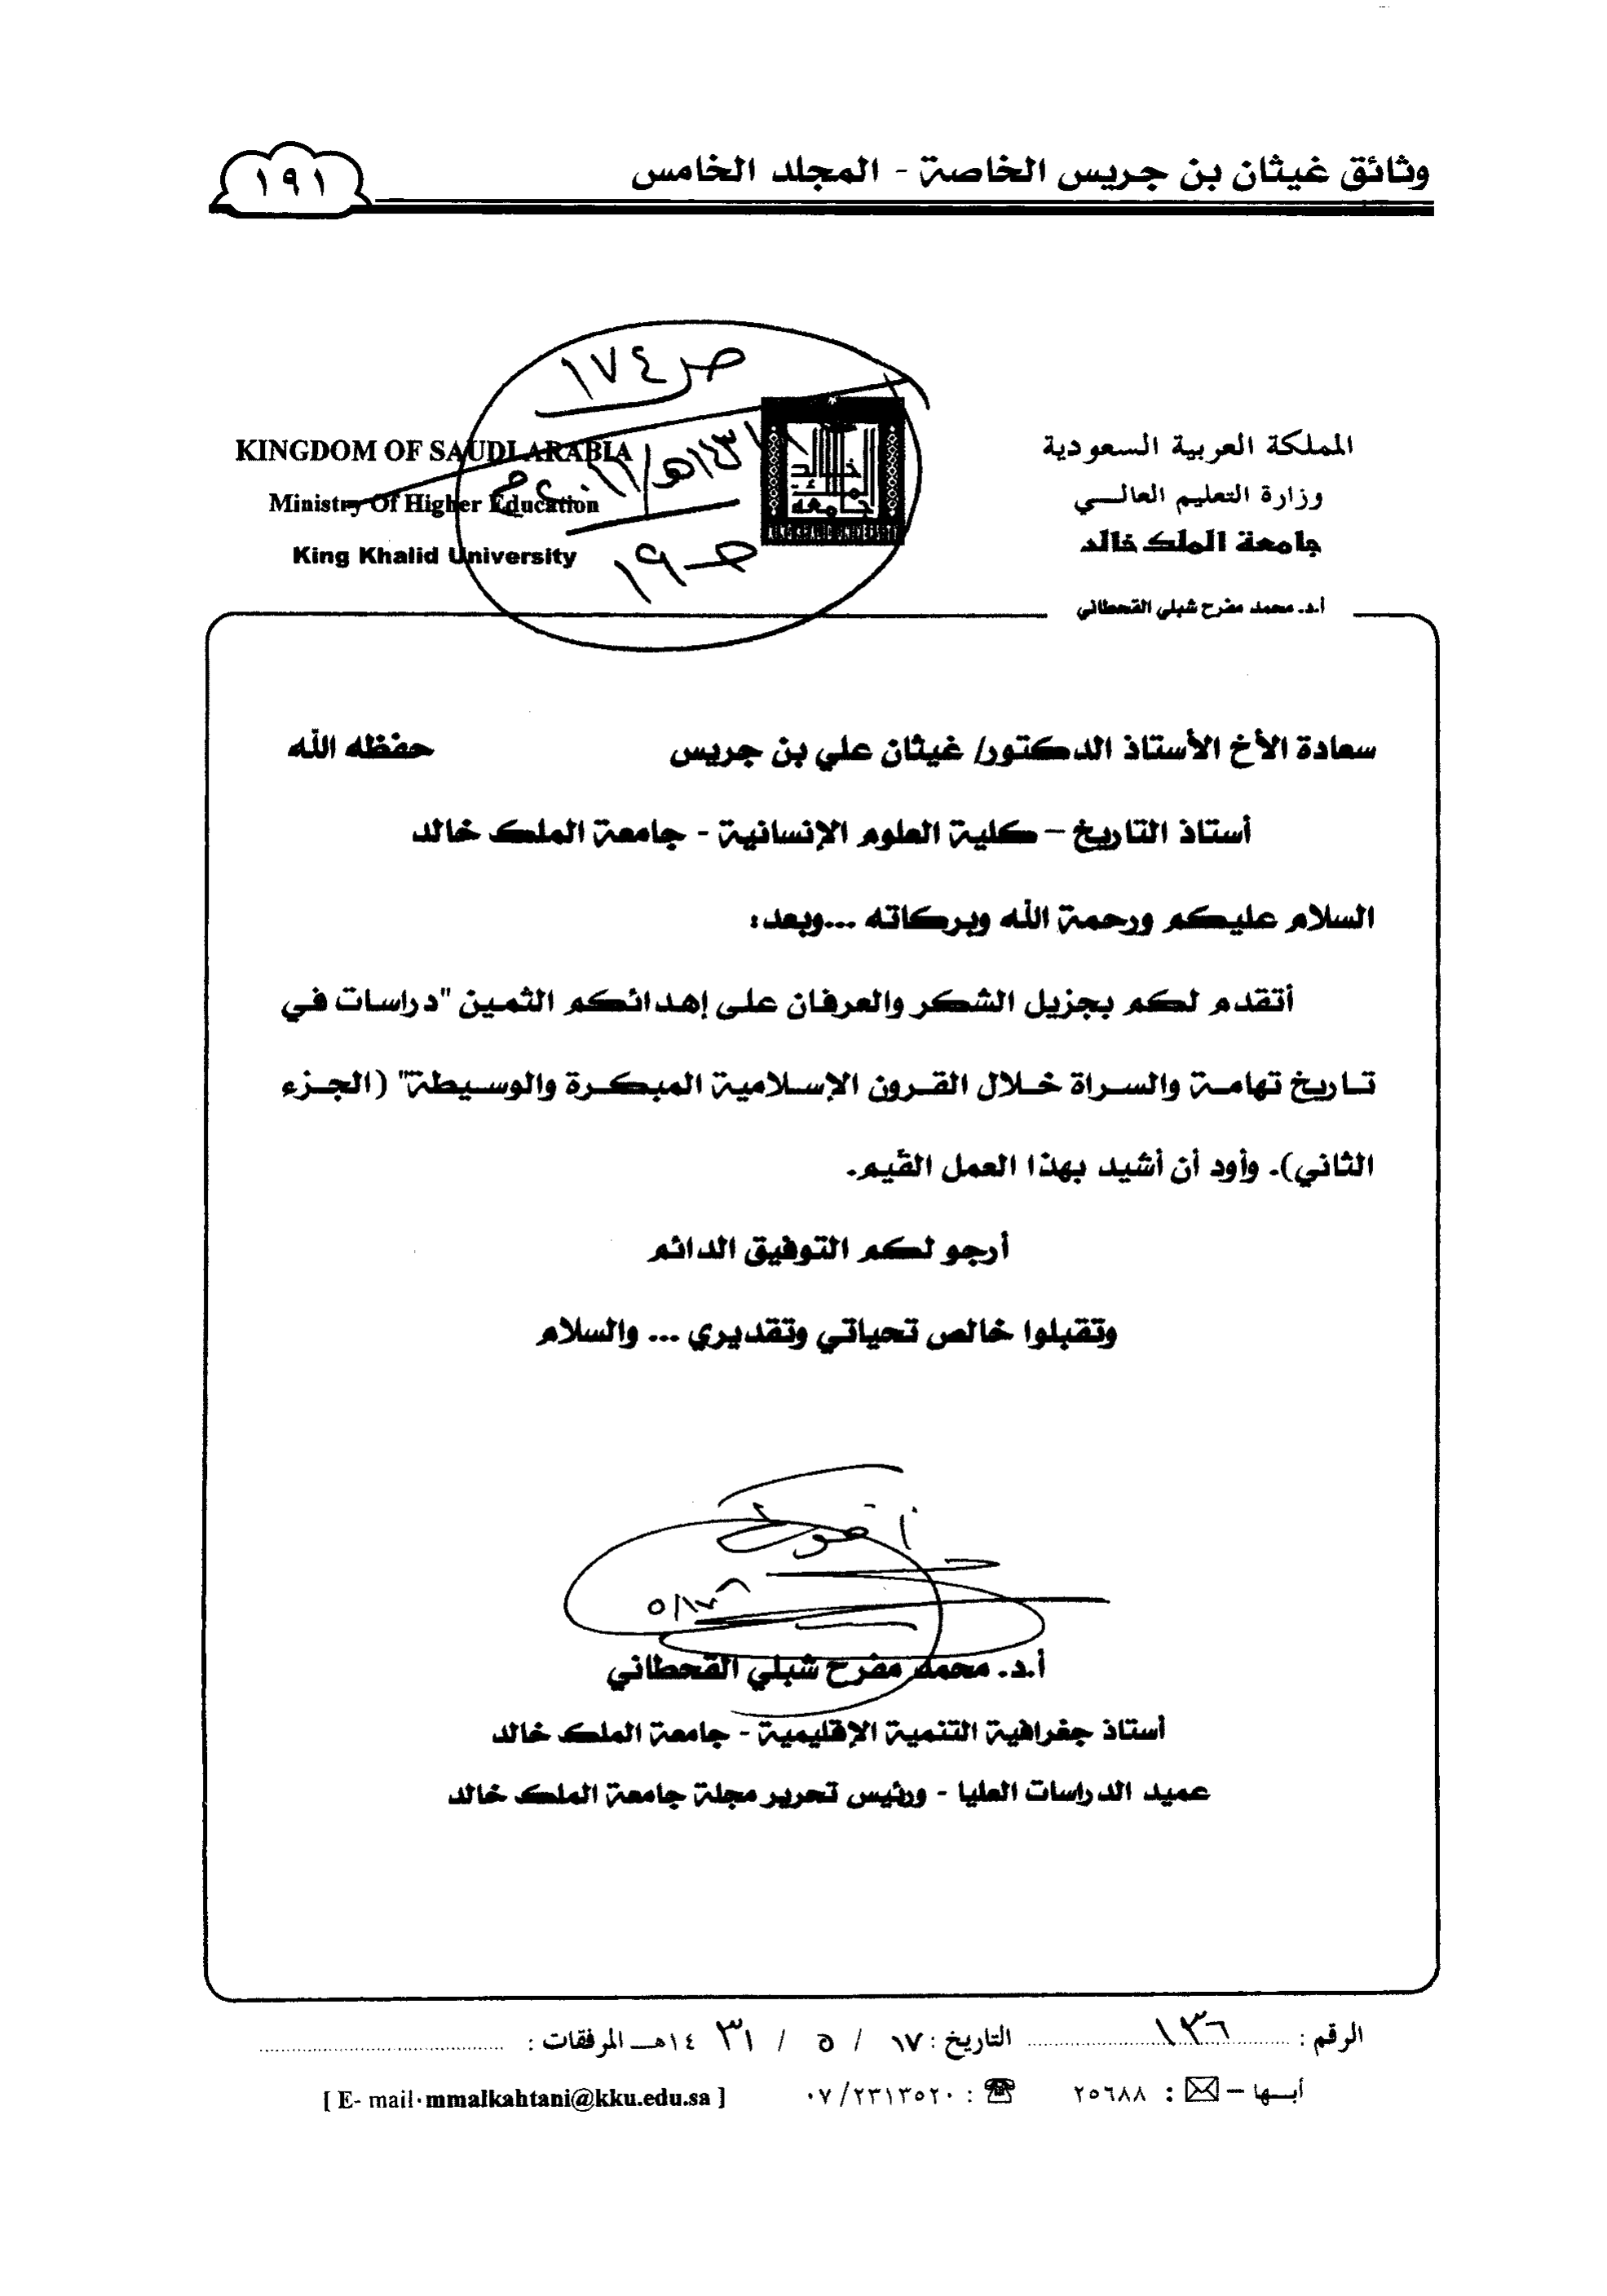 وثائق غيثان بن جريس الخاصة - المجلد الخامس
١٩١
ص ١٧٤
١٤٣١هـ/٢٠١١م
ص ١٩
KINGDOM OF SAUDI ARABIA
Ministry Of Higher Education
King Khalid University
المملكة العربية السعودية
وزارة التعليم العالـــي
جامعة الملك خالد
أ.د. محمد مفرح شبلي القحطاني
سعادة الأخ الأستاذ الدكتور/ غيثان علي بن جريس حفظه الله
أستاذ التاريخ – كلية العلوم الإنسانية - جامعة الملك خالد
السلام عليكم ورحمة الله وبركاته ...وبعد:
أتقدم لكم بجزيل الشكر والعرفان على إهدائكم الثمين "دراسات في
تاريخ تهامة والسراة خلال القرون الإسلامية المبكرة والوسيطة" (الجزء
الثاني). وأود أن أشيد بهذا العمل القّيم.
أرجو لكم التوفيق الدائم
وتقبلوا خالص تحياتي وتقديري ... والسلام
أ.د. محمد مفرح شبلي القحطاني
أستاذ جغرافية التنمية الإقليمية - جامعة الملك خالد
عميد الدراسات العليا - ورئيس تحرير مجلة جامعة الملك خالد
الرقم : ١٣٦ التاريخ : ١٧ / ٥ / ١٤٣١هـ المرفقات :
أبـها – : ٢٥٦٨٨ : ٠٧/٢٣١٣٥٢٠ [ E- mail· mmalkahtani@kku.edu.sa ]